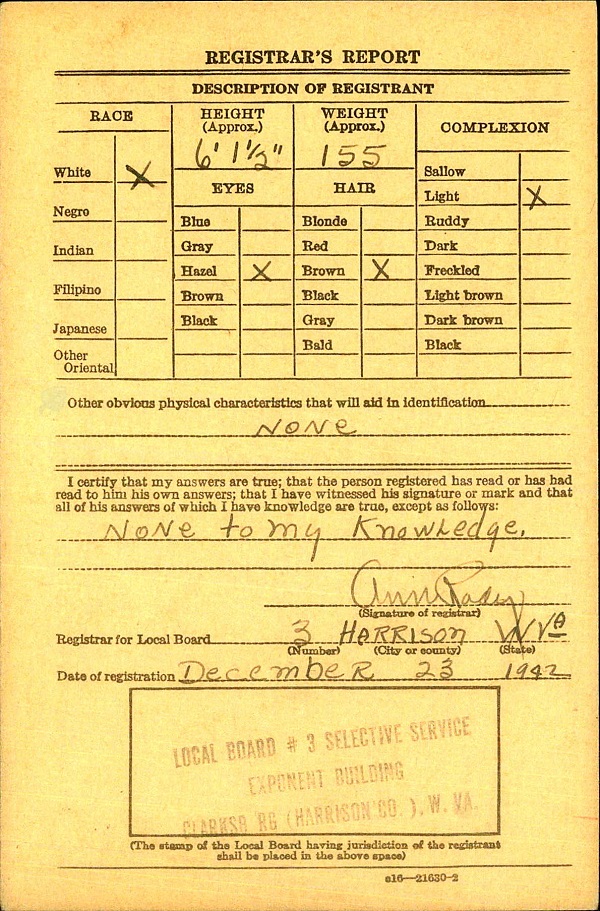 REGISTRAR'S REPORT
DESCRIPTION OF REGISTRANT
RACE
HEIGHT (Approx.)
WEIGHT (Approx.)
COMPLEXION
6' 1 1/2"
155
White X
Negro
Indian
Filipino
Japanese
Other Oriental
EYES
Blue
Gray
Hazel X
Brown
Black
HAIR
Blonde
Red
Brown X
Black
Gray
Bald
Sallow
Light X
Ruddy
Dark
Freckled
Light brown
Dark brown
Black
Other obvious physical characteristics that will aid in identification
NONE
I certify that my answers are true; that the person registered has read or has had
read to him his own answers; that I have witnessed his signature or mark and that
all of his answers of which I have knowledge are true, except as follows:
NONE to my Knowledge.
Ann
(Signature of registrar)
Registrar for Local Board 3 HARRISON W VA
(Number) (City or county) (State)
Date of registration December 23 1942
LOCAL BOARD # 3 SELECTIVE SERVICE
EXPONENT BUILDING
CLARKSB RG (HARRISON CO. ), W. VA.
(The stamp of the Local Board having jurisdiction of the registrant
shall be placed in the above space)
e16—21630-2